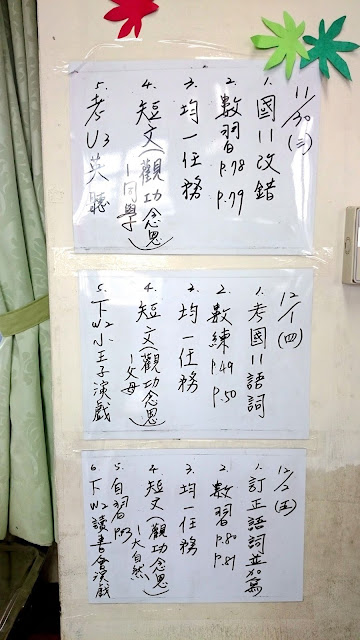 11/30(三)
1. 國11改錯
2. 數習P.78 P.79
3. 均一任務
4. 短文(觀功念恩)
－同學
5. 考U3英聽
12/1(四)
1. 考國11語詞
2. 數練P.49 P.50
3. 均一任務
4. 短文(觀功念恩)
－父母
5. 下W2小王子演戲
12/2(五)
1. 訂正語詞並加寫
2. 數習P.80 P.81
3. 均一任務
4. 短文(觀功念恩)
－大自然
5. 自習P.83
6. 下W2讀書會演戲